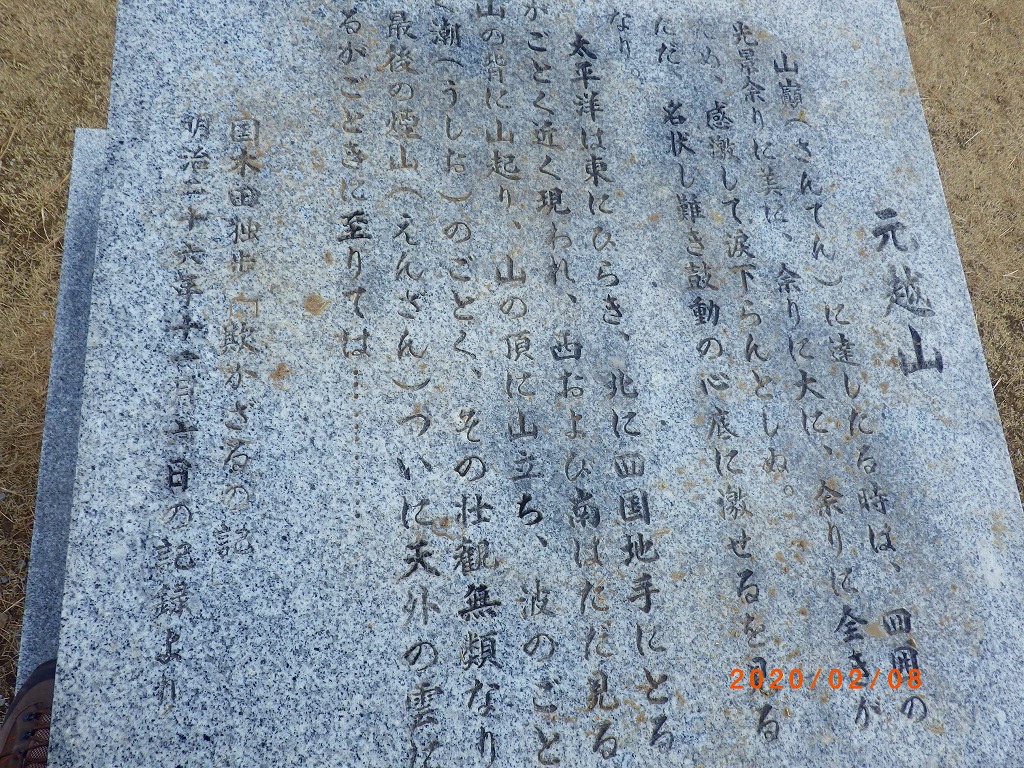 元越山
山巓(さんてん)に達したる時は、四囲の
光景余りに美に、余りに大に、余りに全きが
ため、感激して涙下らんとしぬ。
ただ、名状し難き鼓動の心底に激せるを見る
なり。
太平洋は東にひらき、北に四国地手にとる
がごとく近く現われ、西および南はただ見る
山の背に山起り、山の頂に山立ち、波のごと
く潮(うしお)のごとく、その壮観無類なり
最後の煙山(えんざん)ついに天外の雲に
るがごときに至りては………
国木田独歩 欺かざるの記
明治二十六年十一月 日の記録より
2020/02/08